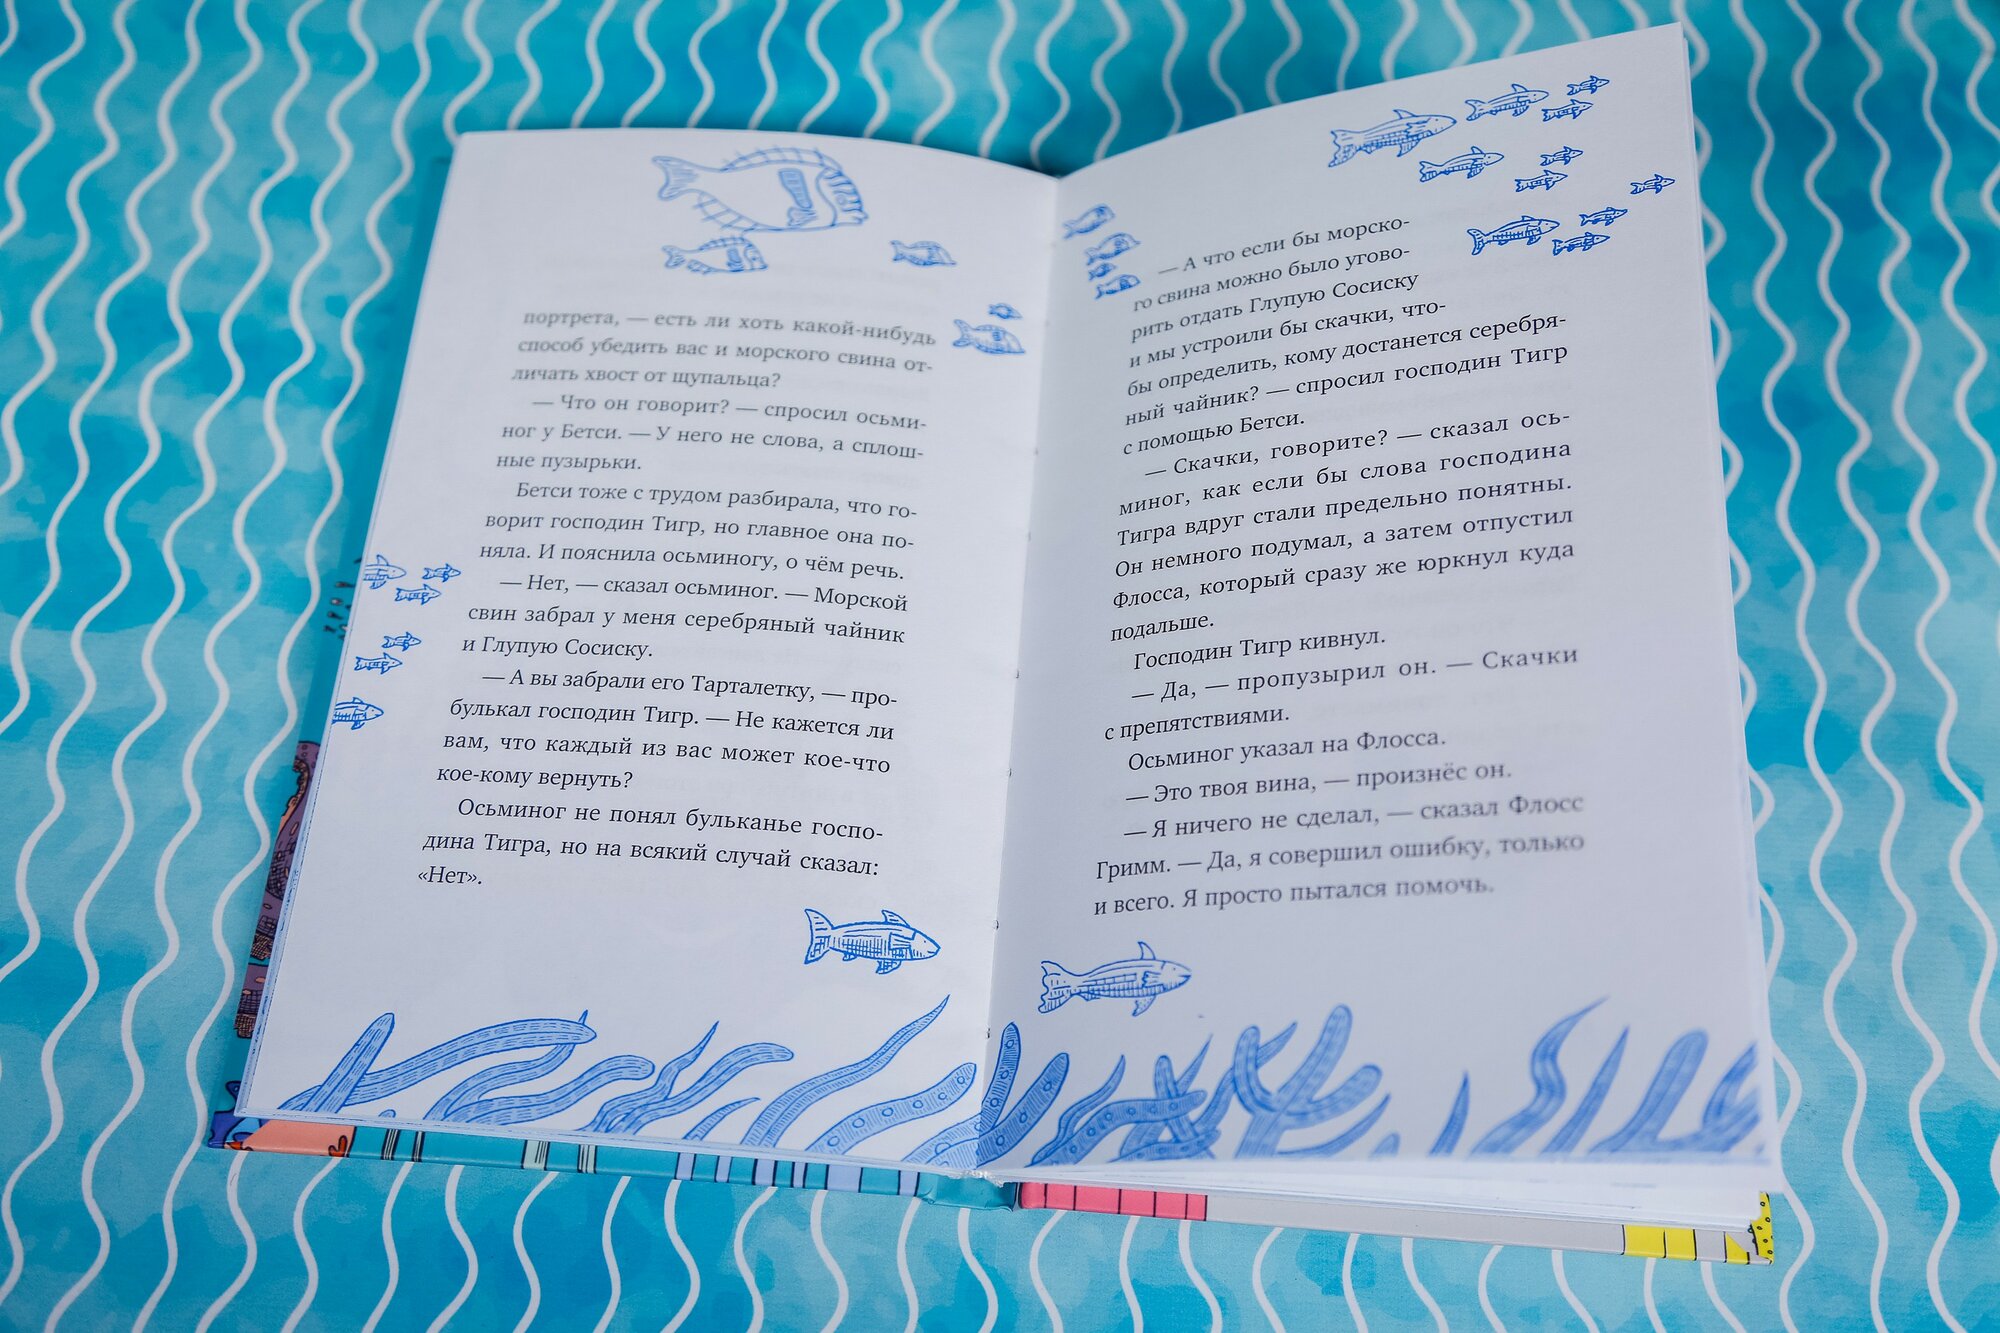 портрета, — есть ли хоть какой-нибудь
способ убедить вас и морского свина от-
личать хвост от щупальца?
— Что он говорит? — спросил осьми-
ног у Бетси. — У него не слова, а сплош-
ные пузырьки.
Бетси тоже с трудом разбирала, что го-
ворит господин Тигр, но главное она по-
няла. И пояснила осьминогу, о чём речь.
— Нет, — сказал осьминог. — Морской
свин забрал у меня серебряный чайник
и Глупую Сосиску.
— А вы забрали его Тарталетку, — про-
булькал господин Тигр. — Не кажется ли
вам, что каждый из вас может кое-что
кое-кому вернуть?
Осьминог не понял бульканье госпо-
дина Тигра, но на всякий случай сказал:
«Нет».
— А что если бы морско-
го свина можно было угово-
рить отдать Глупую Сосиску
и мы устроили бы скачки, что-
бы определить, кому достанется серебря-
ный чайник? — спросил господин Тигр
с помощью Бетси.
— Скачки, говорите? — сказал ось-
миног, как если бы слова господина
Тигра вдруг стали предельно понятны.
Он немного подумал, а затем отпустил
Флосса, который сразу же юркнул куда
подальше.
Господин Тигр кивнул.
— Да, — пропузырил он. — Скачки
с препятствиями.
Осьминог указал на Флосса.
— Это твоя вина, — произнёс он.
— Я ничего не сделал, — сказал Флосс
Гримм. — Да, я совершил ошибку, только
и всего. Я просто пытался помочь.